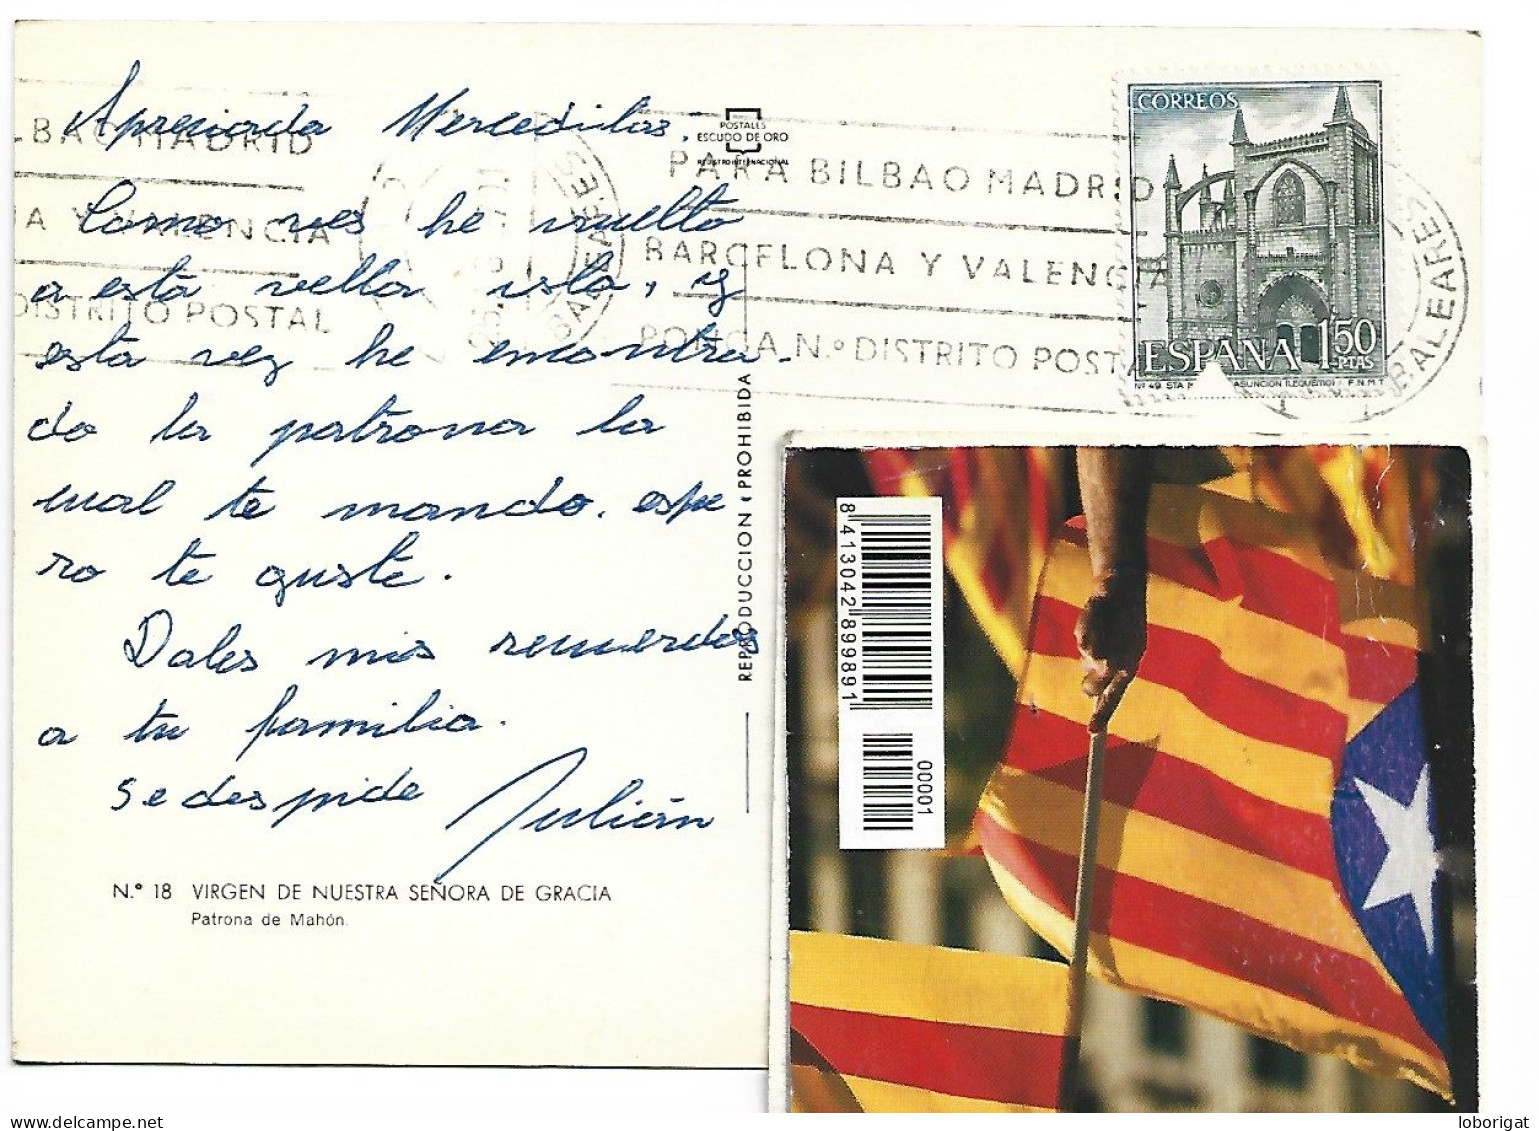 Apreciada Merceditas:
Como ves he vuelto
a esta vella isla, y
esta vez he encontra-
do la patrona la
cual te mando. espe
ro te guste.
Dales mis recuerdos
a tu familia.
se despide Julián
N.º 18 VIRGEN DE NUESTRA SEÑORA DE GRACIA
Patrona de Mahón.
POSTALES
ESCUDO DE ORO
REGISTRO INTERNACIONAL
REPRODUCCION PROHIBIDA
LBAO MADRID
A Y VALENCIA
DISTRITO POSTAL
PARA BILBAO MADRID
BARCELONA Y VALENCIA
PONGA N.º DISTRITO POSTA
BALEARES
BALEARES
CORREOS
ESPAÑA 1,50
PTAS
ASUNCION (LEQUEITIO) F.N.M.T
8 413042 899891
00001
loborigat